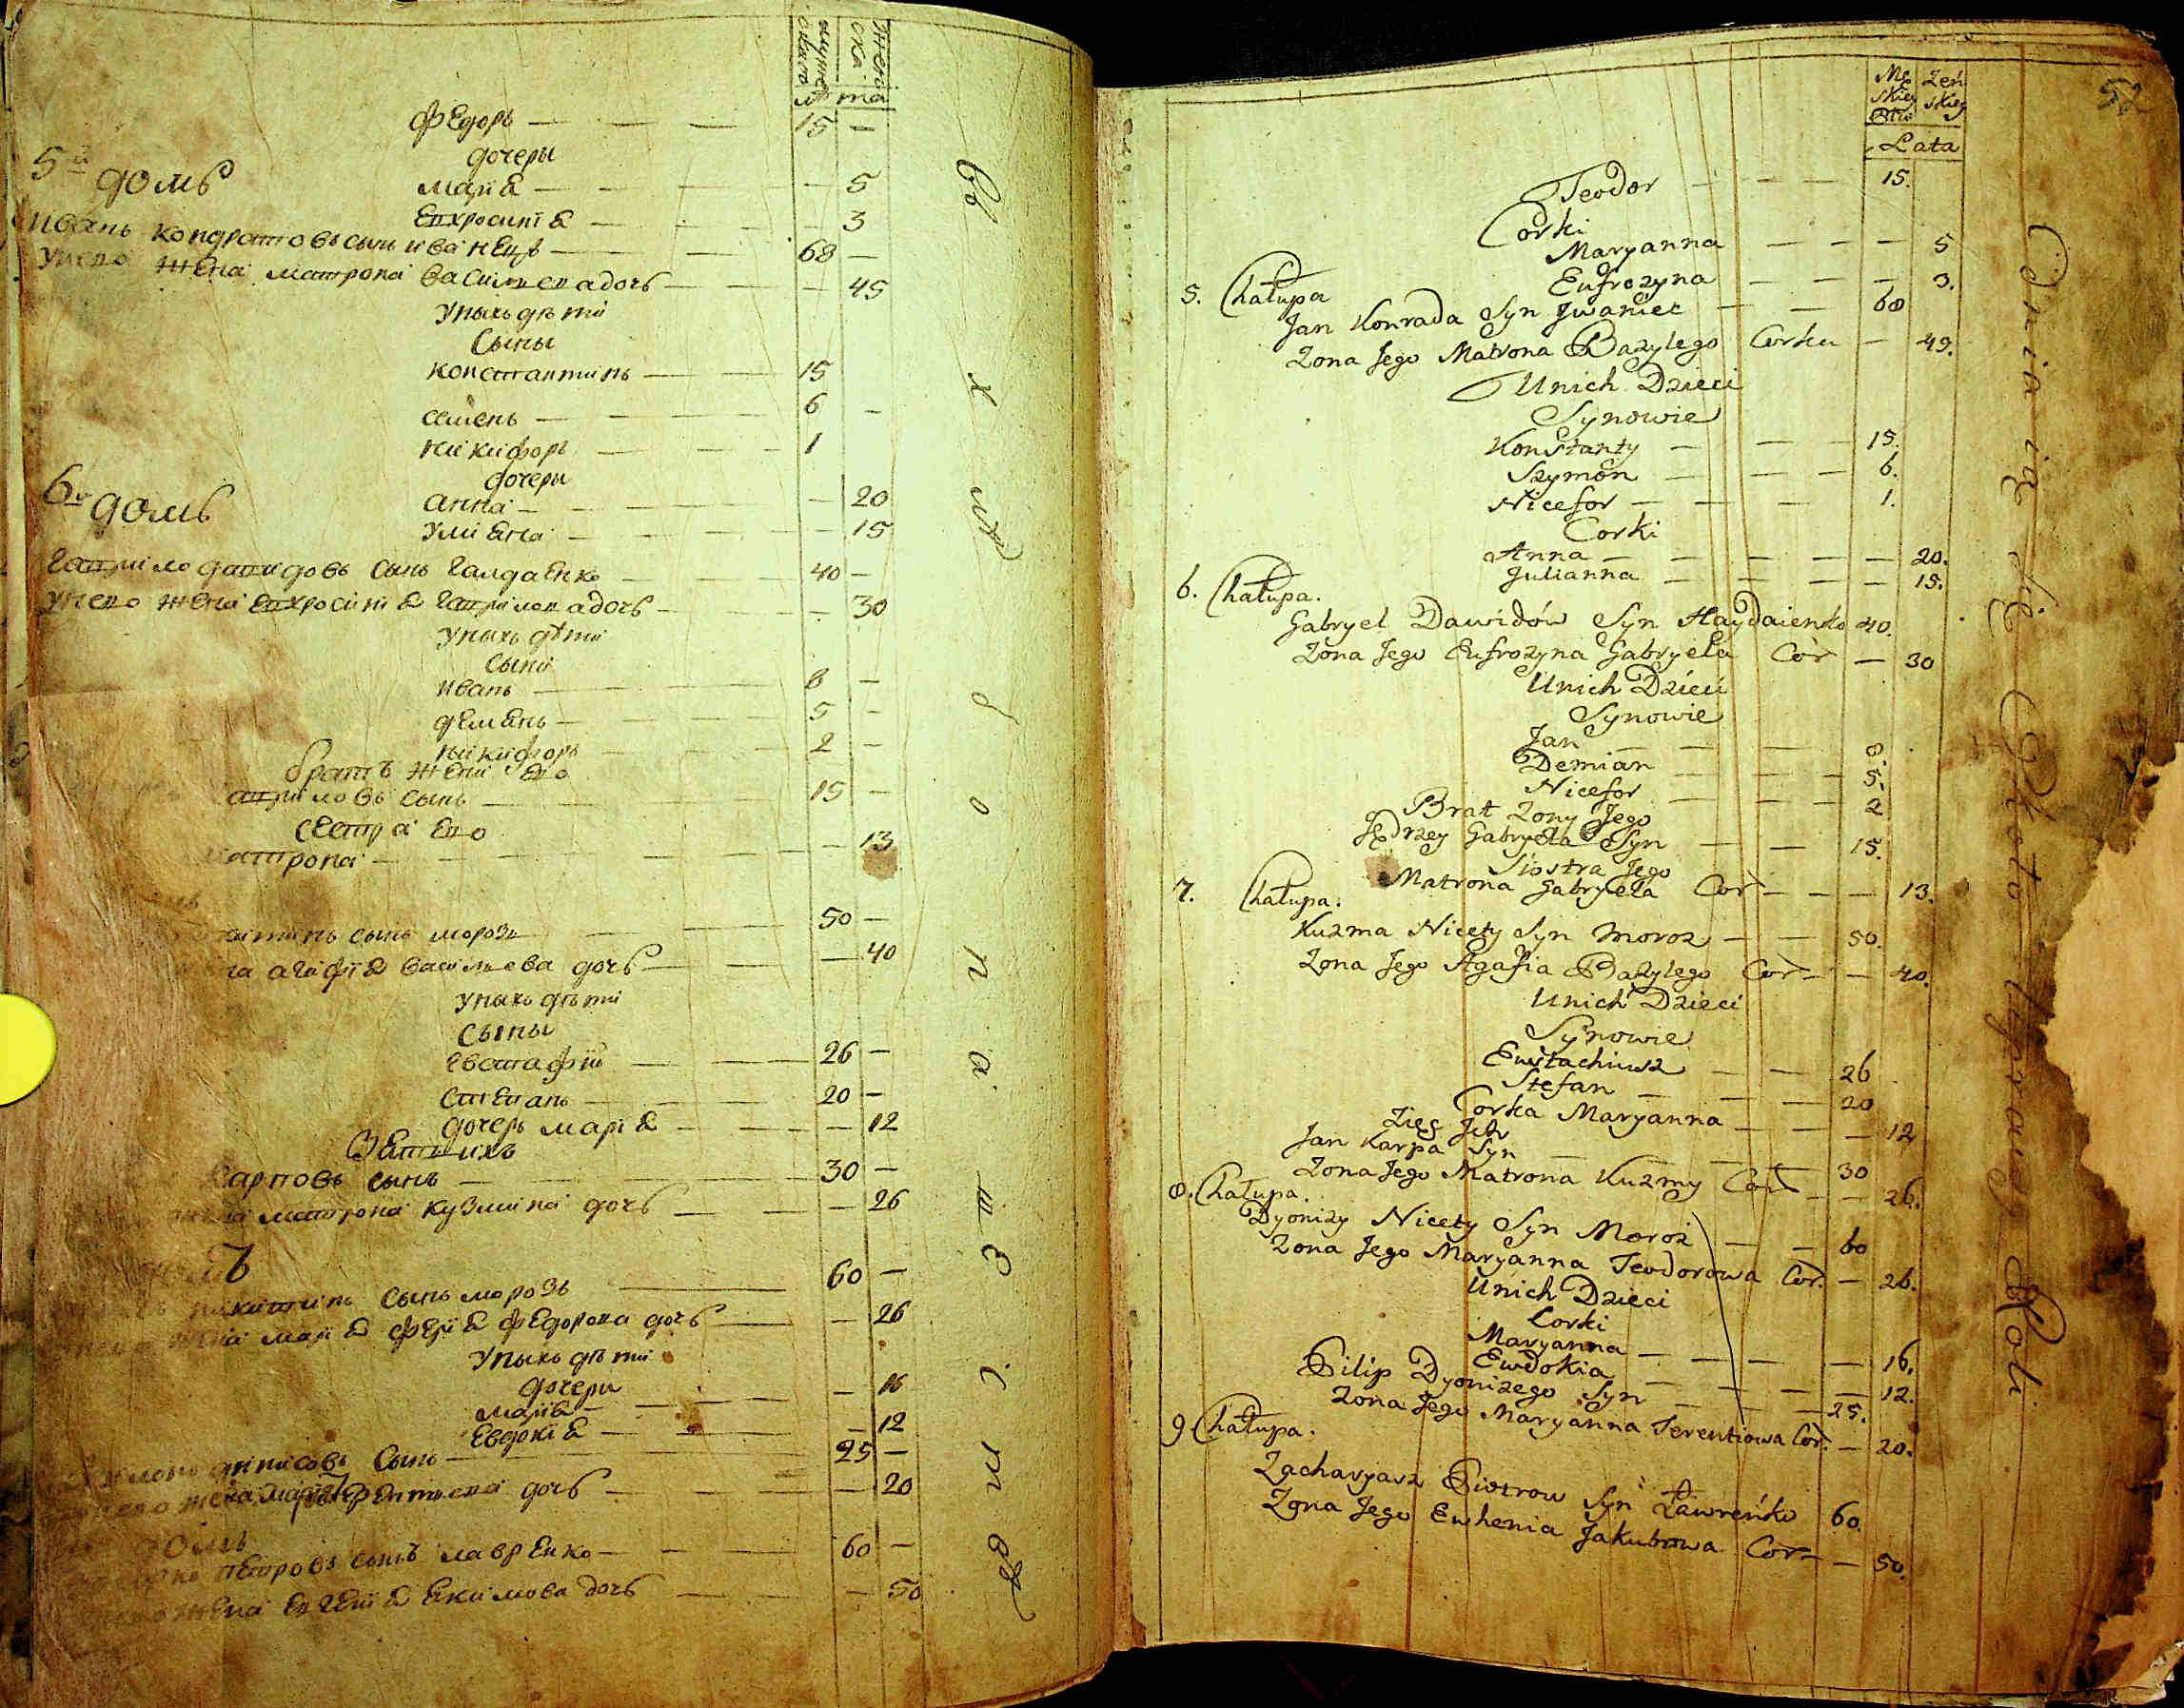 мужеска
Женска
лѣта
Федоръ — — — 15 —
дочеры
Марія — — — — 5
Епхросинія — — — — 3
5й домъ
Иванъ Кондратовъ сынъ Иванецъ — — 68 —
унего жена Матрона Василиева дочь — — — 45
унихъ дѣти
Сыны
Константинъ — — 15
Семенъ — — — 6 —
Никифоръ — — — 1
дочеры
Анна — — — — 20
Улияна — — — — 15
6й домъ
Гаврило Давидовъ сынъ Галдаенко — — 40 —
унего жена Епхросинія Гаврилова дочь — — 30
унихъ дѣти
Сыни
Иванъ — — — 8 —
Демянъ — — — 5 —
Никифоръ — — — 2 —
братъ жени его
Гавриловъ сынъ — — — 15 —
сестра его
Матрона — — — — 13
сынъ Морозъ — — 50 —
Агафія Василиева дочь — — — 40
унихъ дѣти
Сыны
Евстафій — — — 26 —
Степанъ — — — 20 —
дочерь Марія — — — 12
Зять ихъ
Карповъ сынъ — — — 30 —
жена Матрона Кузмина дочь — — — 26
Никитинъ сынъ Морозъ — 60 —
жена Марія Федорова дочь — — 26
унихъ дѣти
дочери
Марія — — — — 16
Евдокія — — — 12
Денисовъ сынъ — — 25 —
жена Марія Терентиева дочь — — — 20
домъ
Петровъ сынъ Лавренко — — — 60 —
жена Евгенія Екимова дочь — — — 50
52
Męskiey
Żeńskiey
Lata
Teodor — — — 15.
Corki
Maryanna — — — 5
Eufrozyna — — — 3.
5. Chałupa
Jan Konrada Syn Jwaniec — — 68
Zona Jego Matrona Bazylego Corka — 45.
Unich Dzieci
Synowie
Konstanty — — — 15.
Szymon — — — 6.
Nicefor — — — 1.
Corki
Anna — — — — — 20.
Julianna — — — — 15.
6. Chałupa.
Gabryel Dawidów Syn Haydaienko 40.
Zona Jego Eufrozyna Gabryela Cor — 30
Unich Dzieci
Synowie
Jan — — — 8.
Demian — — — 5.
Nicefor — — — 2
Brat Zony Jego
Jędrzey Gabryela Syn — — 15.
Siostra Jego
Matrona Gabryela Cor — — — 13.
7. Chałupa.
Kuzma Nicety Syn Moroz — — 50.
Zona Jego Agafia Bazylego Cor — — 40.
Unich Dzieci
Synowie
Ewstachiusz — — 26
Stefan — — — 20
Corka Maryanna — — — 12
Zięć Ich
Jan Karpa Syn — — — 30
Zona Jego Matrona Kuzmy Cor — — 26.
8. Chałupa.
Dyonizy Nicety Syn Moroz — — 60
Zona Jego Maryanna Teodorowa Cor. — 26.
Unich Dzieci
Corki
Maryanna — — — — 16.
Ewdokia — — — — 12.
Filip Dyonizego Syn — — — 25.
Zona Jego Maryanna Terentiowa Cor. — 20.
9 Chałupa.
Zacharyasz Piotrow Syn Ławreńko 60.
Zona Jego Ewhenia Jakubowa Cor — — 50.